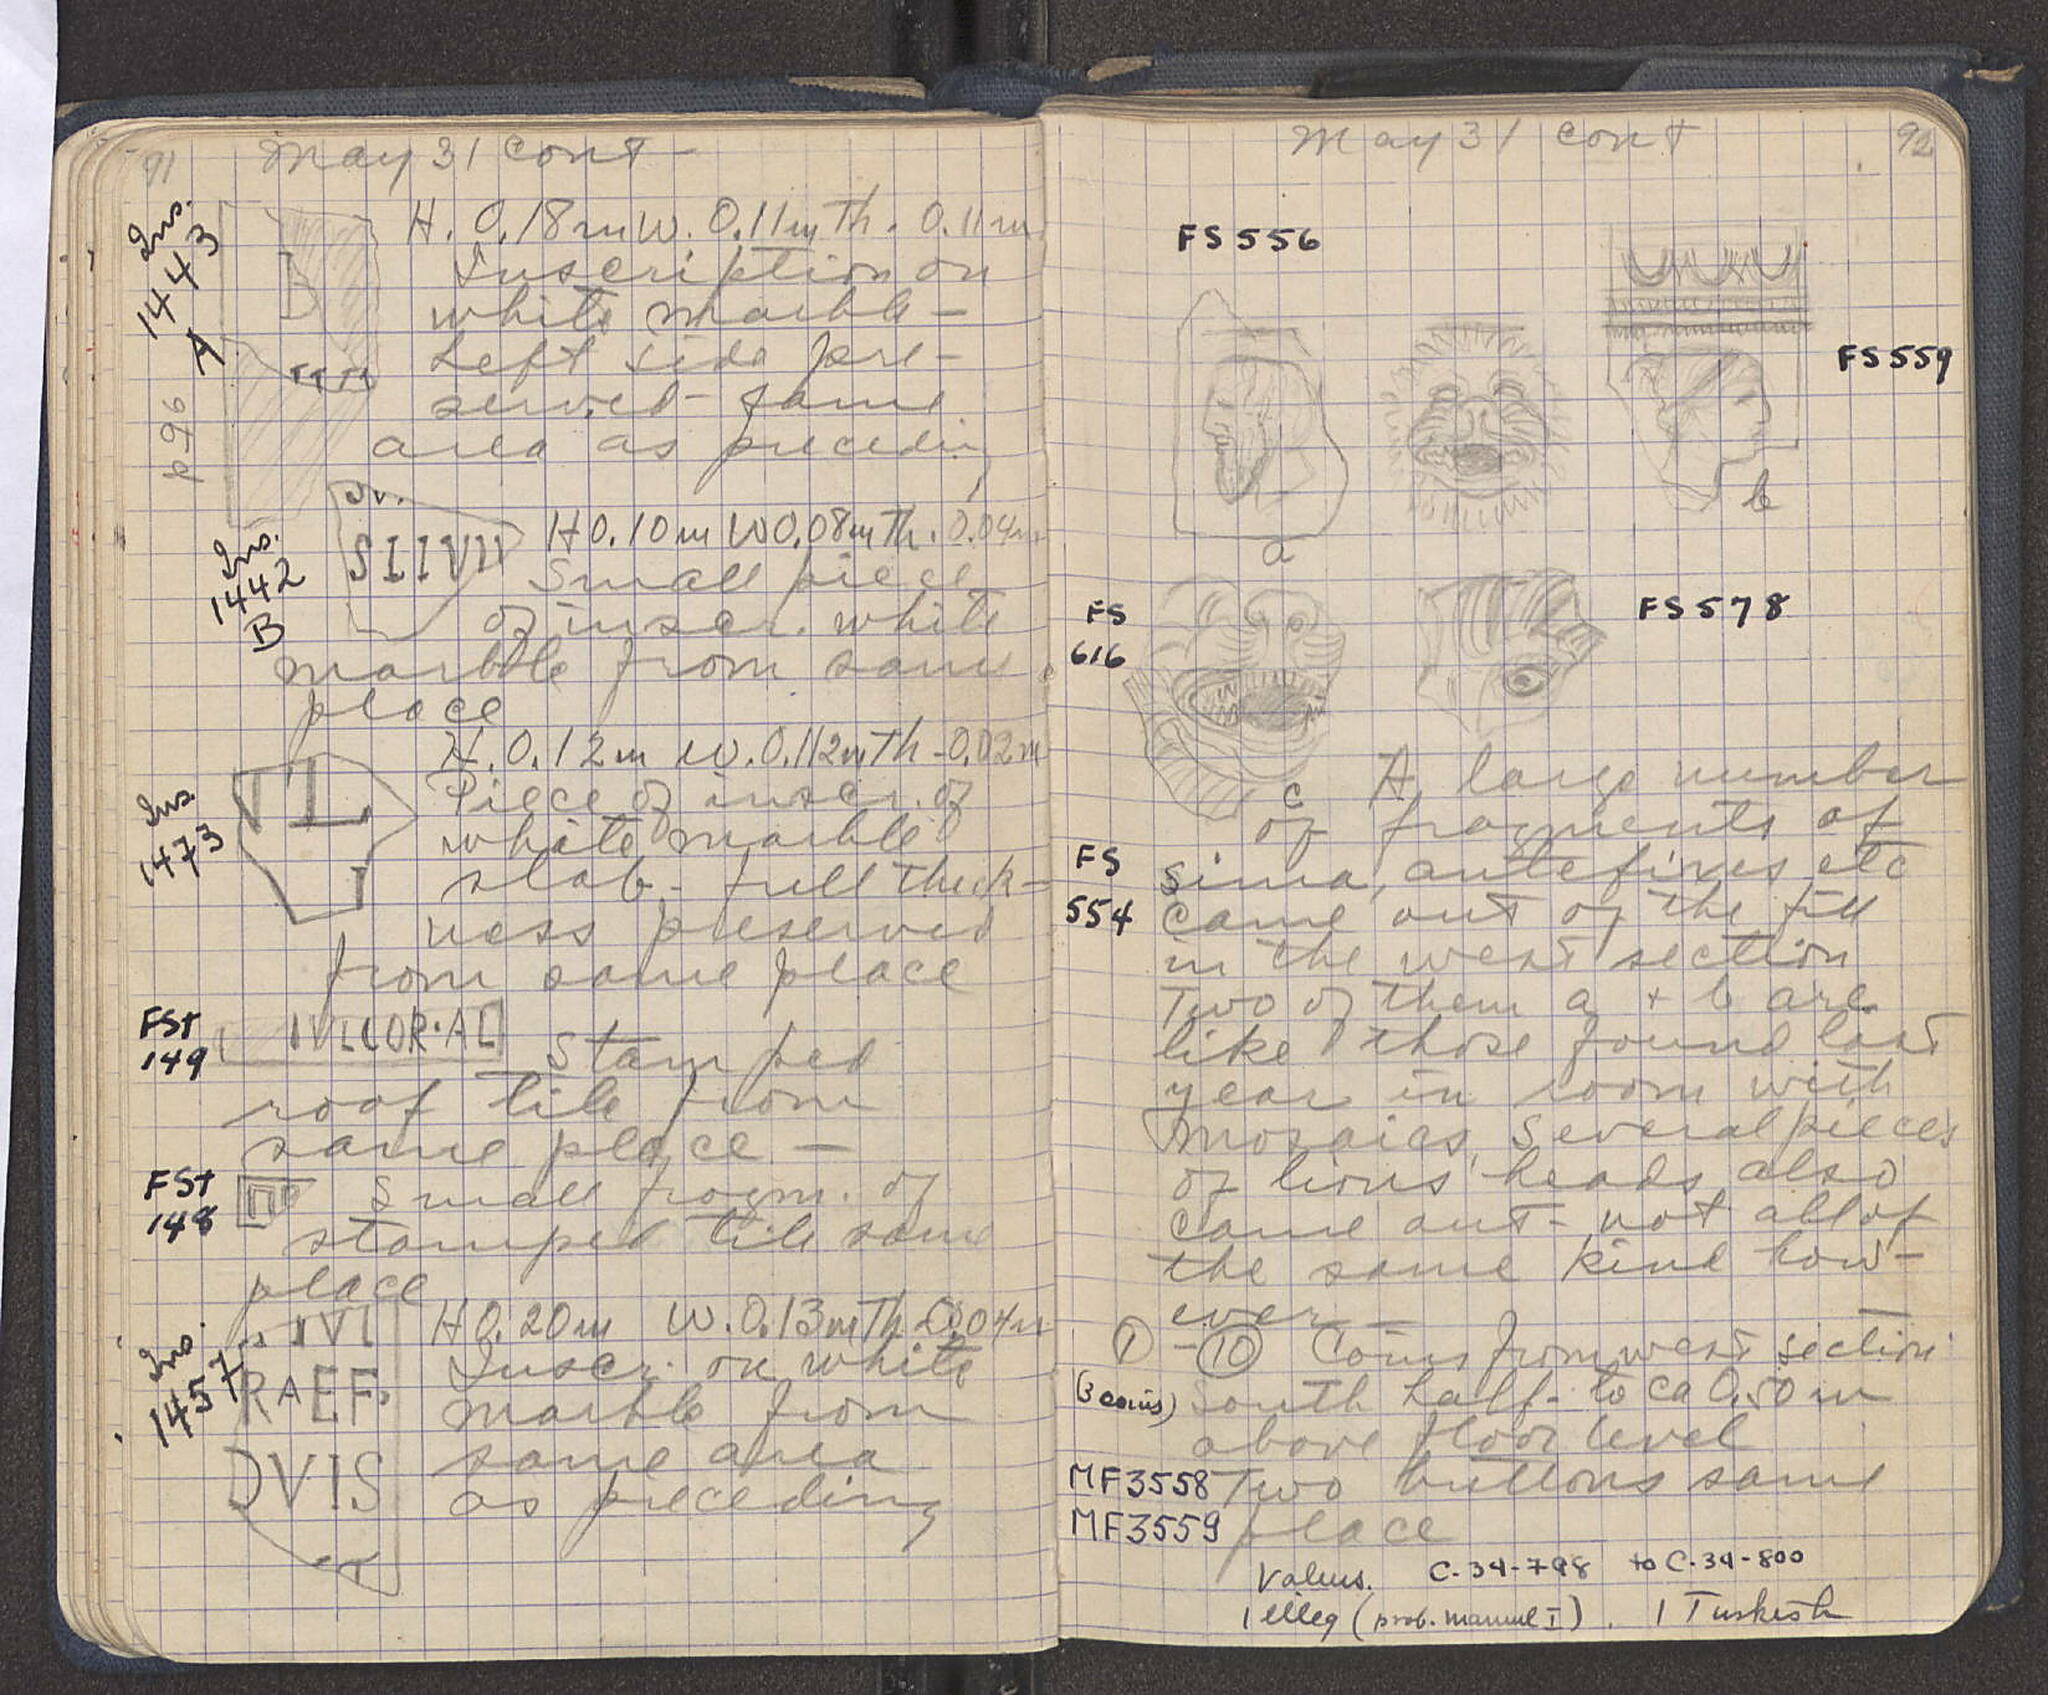 91 May 31 cont -
Ins. 1443 A
p 96
H. 0.18m W. 0.11m Th. 0.11m
Inscription on
white marble -
Left side pre-
served - same
area as preceding
Ins. 1442 B
SIIVII
H 0.10m W 0.08m Th. 0.04m
Small piece
of inscr. white
marble from same
place
Ins. 1473
H. 0.12m W. 0.112m Th - 0.02m
Piece of inscr. of
white marble
slab - full thick-
ness preserved
from same place
FSt 149
IVLCOR·AC
Stamped
roof tile from
same place -
FSt 148
Small fragm. of
stamped tile same
place
Ins. 1457
IVI
RAEF
DVIS
H 0.20m W. 0.13m Th - 0.04m
Inscr. on white
marble from
same area
as preceding
May 31 cont 92
FS 556
FS 559
a
b
FS 616
FS 578
c
A large number
of fragments of
FS 554
sima, antefixes etc
came out of the fill
in the west section
Two of them a + b are
like those found last
year in room with
mosaics, Several pieces
of lions' heads also
came out - not all of
the same kind how-
ever -
1 - 10 Coins from west section
(3 coins) South half - to ca 0.50 m
above floor level
MF3558 Two buttons same
MF3559 place
Values. C-34-798 to C-34-800
1 illeg (prob. Manuel I). 1 Turkish